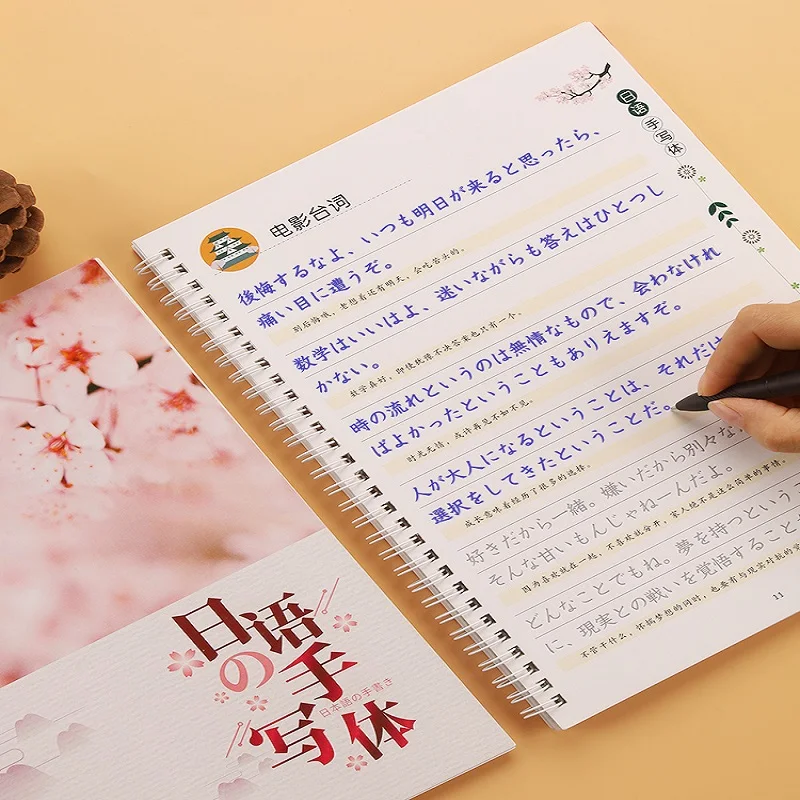 日语
手写体
电影台词
後悔するなよ、いつも明日が来ると思ったら、
痛い目に遭うぞ。
到后悔哦,老想着还有明天,会吃苦头的。
数学はいいはよ、迷いながらも答えはひとつし
かない。
数学真好,即使犹豫不决答案也只有一个。
時の流れというのは無情なもので、会わなけれ
ばよかったということもありえますぞ。
时光无情,或许再见不如不见。
人が大人になるということは、それだけ
選択をしてきたということだ。
成长意味着经历了很多的选择。
好きだから一緒。嫌いだから別々な
そんな甘いもんじゃねーんだよ。
因为喜欢就在一起,不喜欢就分开,家人绝不是这么简单的事情。
どんなことでもね。夢を持つという
に、現実との戦いを覚悟すること
不管干什么,怀揣梦想的同时,也要有与现实对抗的
11
日语
の手
写体
日本語の手書き